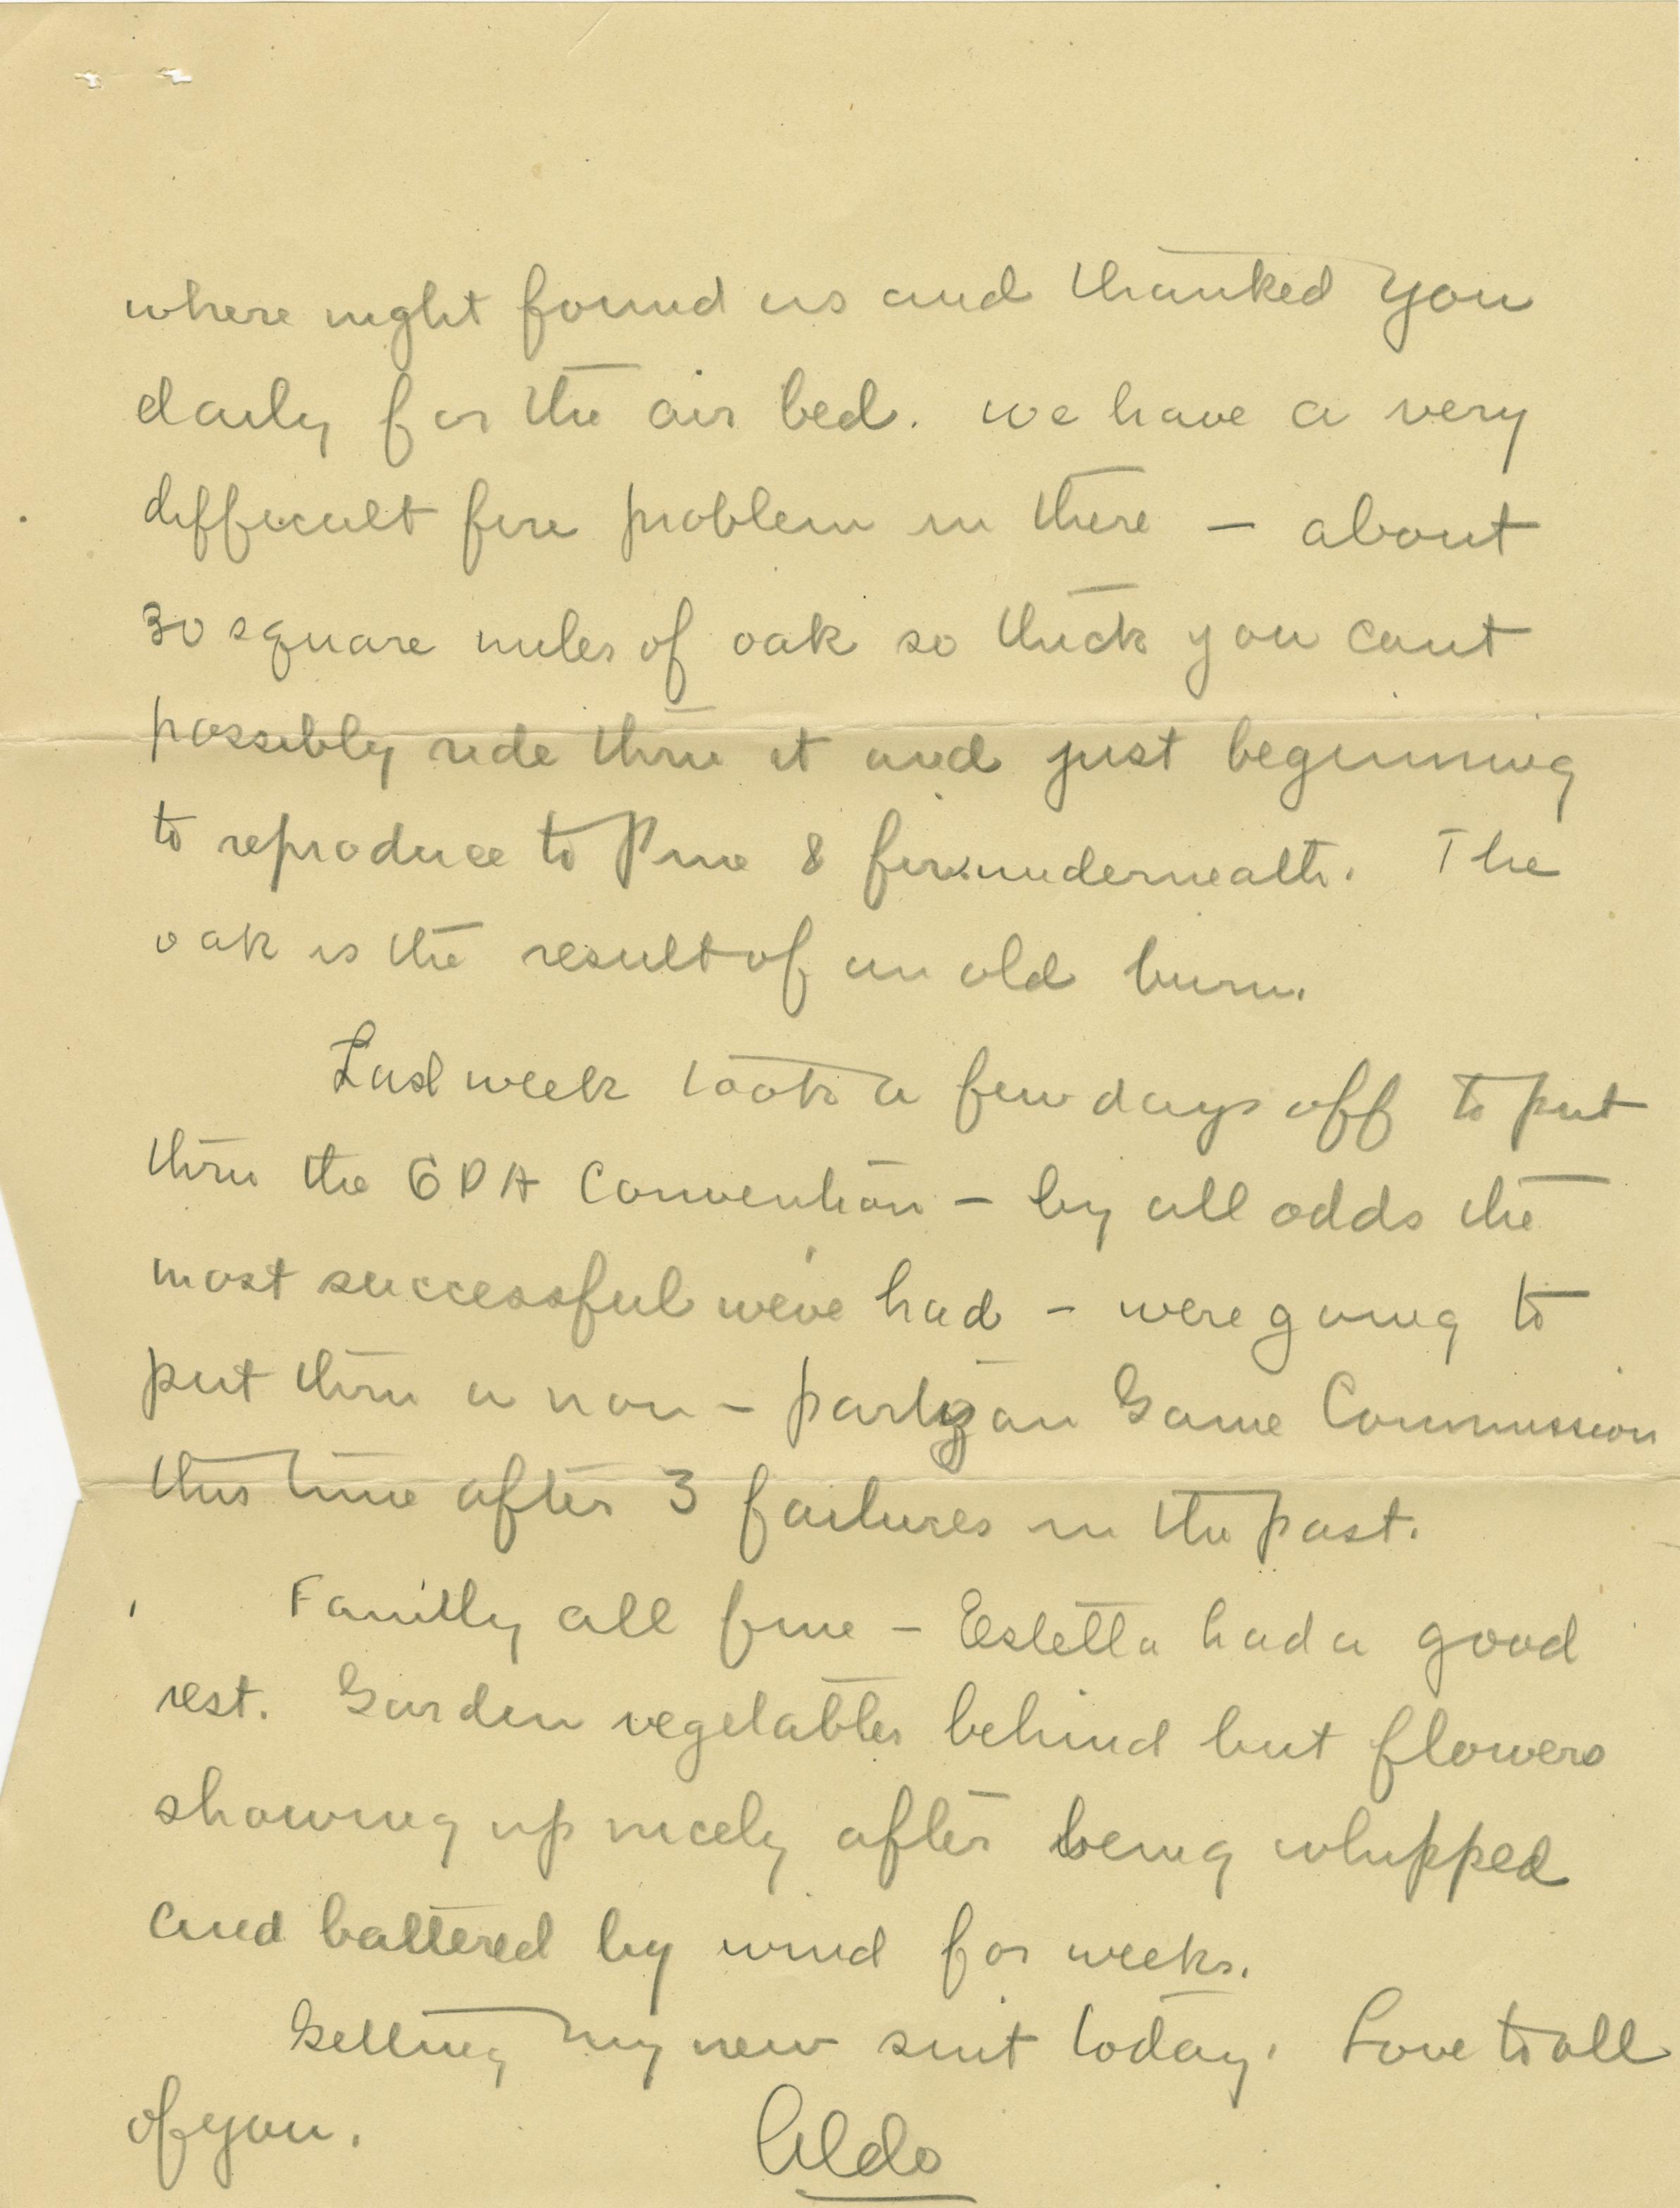 where night found us and thanked you
daily for the air bed. We have a very
difficult fire problem in there – about
30 square miles of oak so thick you cant
possibly ride thru it and just beginning
to reproduce to Pine & fir underneath. The
oak is the result of an old burn.
Last week took a few days off to put
thru the GPA Convention – by all odds the
most successful weve had – were going to
put thru a non-partizan Game Commission
this time after 3 failures in the past.
Family all fine – Estella had a good
rest. Garden vegetables behind but flowers
showing up nicely after being whipped
and battered by wind for weeks.
Getting my new suit today. Love to all
of you.
Aldo